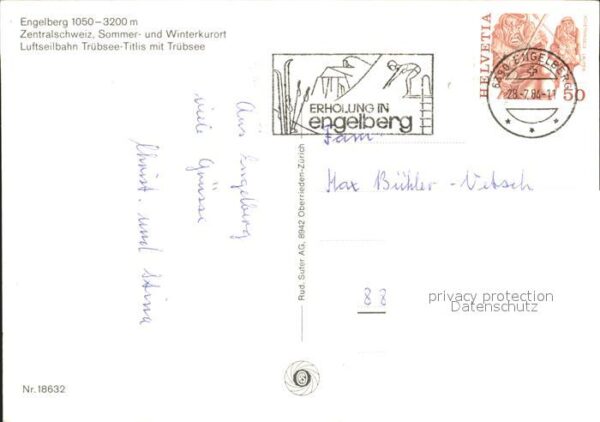 Engelberg 1050–3200 m
Zentralschweiz, Sommer- und Winterkurort
Luftseilbahn Trübsee-Titlis mit Trübsee
ERHOLUNG IN
engelberg
HELVETIA
50
6390 ENGELBERG
28.-7.84-11
Aus Engelberg
viele Grüsse
Christ. und Stina
Rud. Suter AG, 8942 Oberrieden-Zürich
Fam.
Max Bühler-Vetsch
88
privacy protection
Datenschutz
Nr. 18632